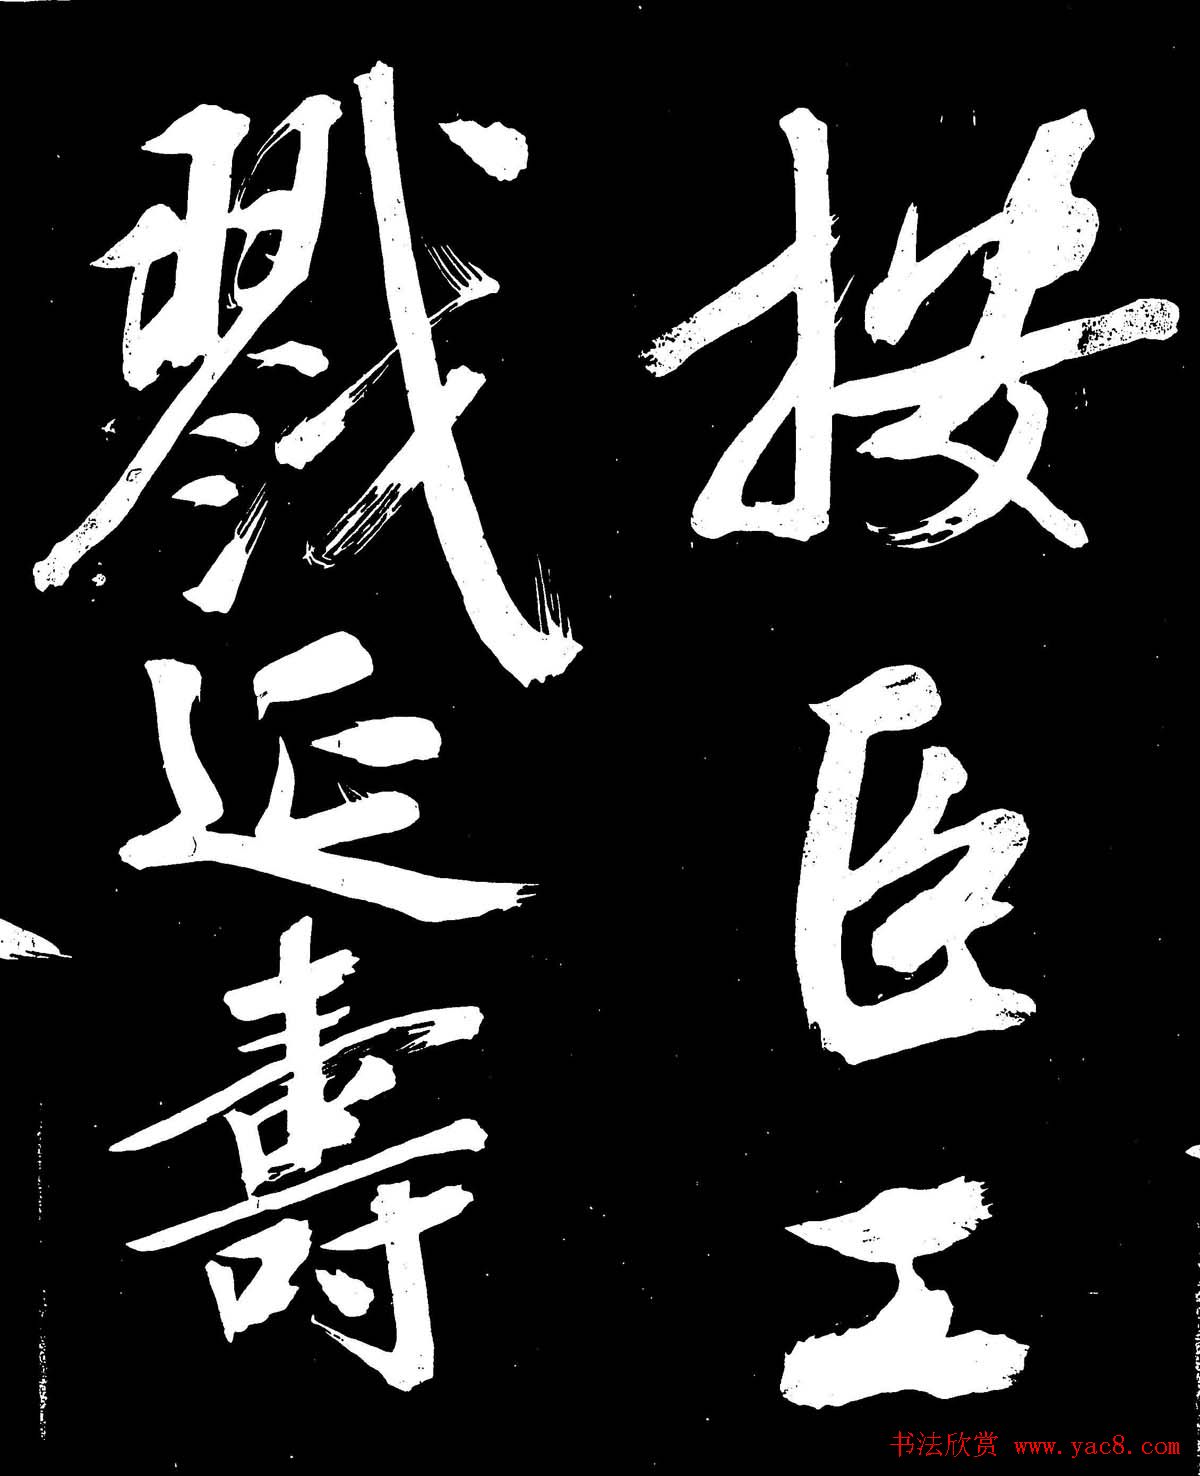 按臣工
戮延壽
书法欣赏 www.yac8.com